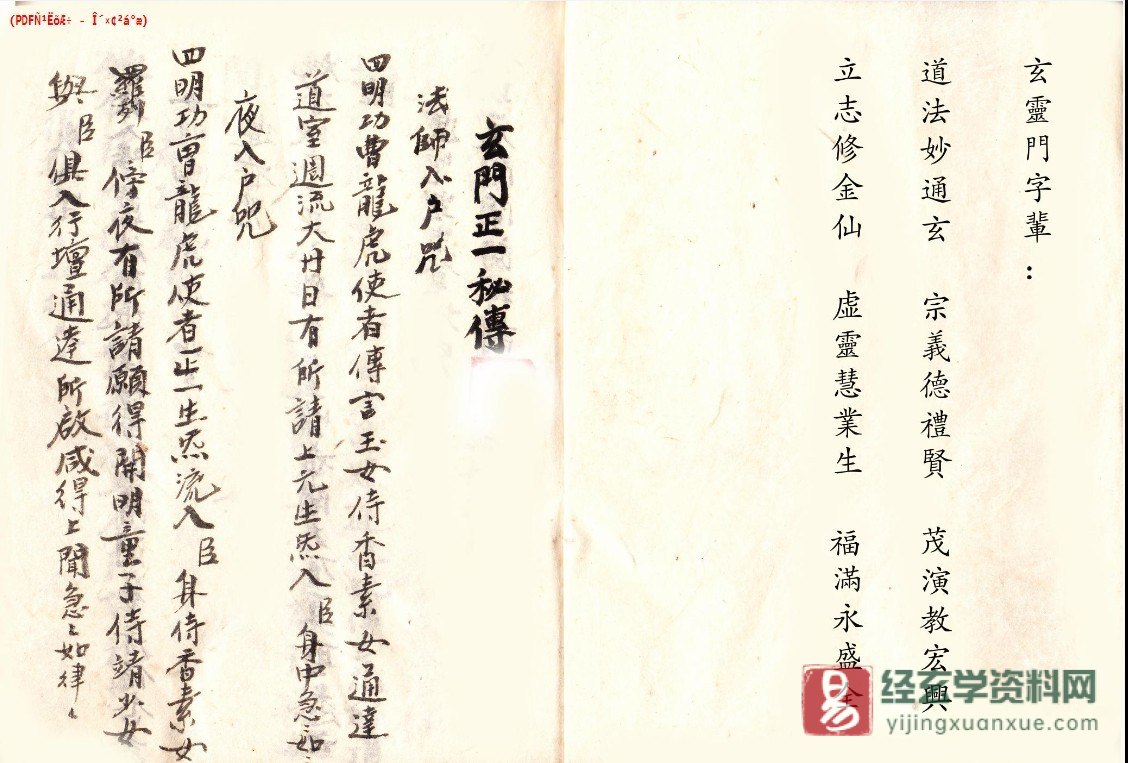 (PDFÑ¹Ëõ&÷ - Î´×¢²á°æ)
玄靈門字輩：
道法妙通玄 宗義德禮賢 茂演教宏興
立志修金仙 虛靈慧業生 福滿永盛全
玄門正一秘傳
法師入户咒
四明功曹龍虎使者傳言玉女侍香素女通達
道室週流大丹日有所請上元生炁入臣身中急〻如
夜入户咒
四明功曹龍虎使者正一生炁流入臣身侍香素女
羅列臣傍夜有所請願得開明童子侍靖少女
與臣俱入行壇通達所啟咸得上聞急〻如律〻
易
经玄学资料网
yijingxuanxue.com